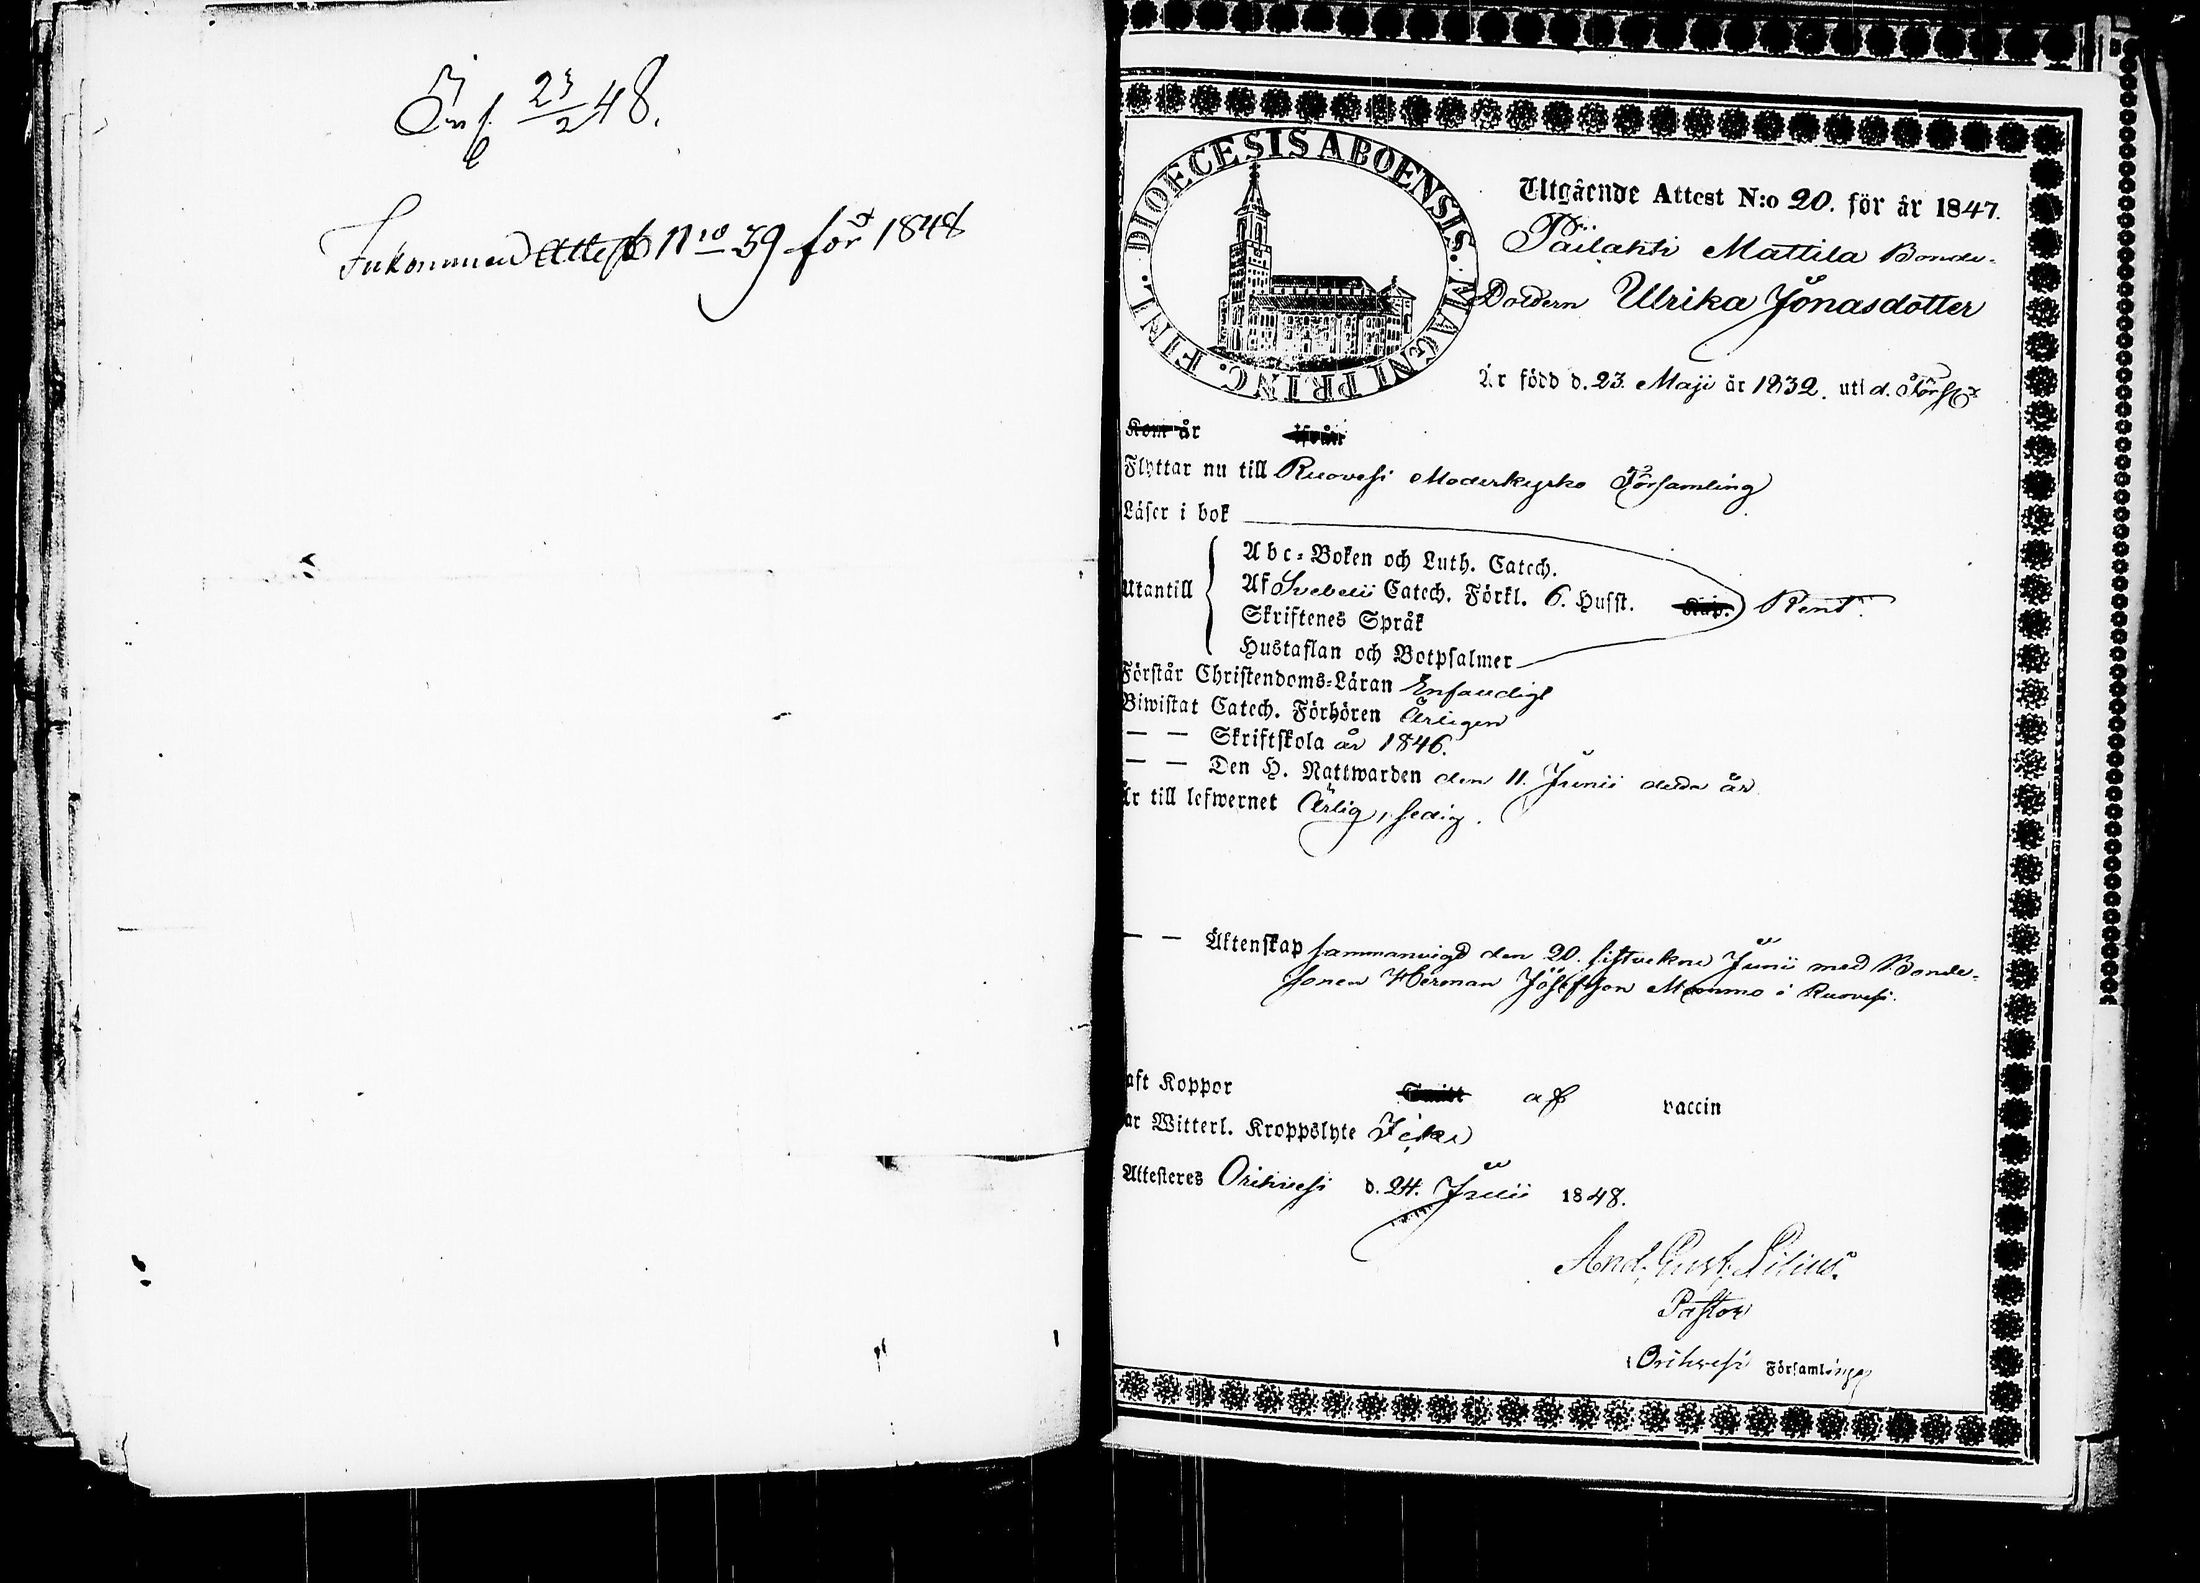 Inf. 23/2 48.
Inkommen Attest N:ro 39 för 1848
DIOECESIS ABOENSIS. MAGNI PRINC. FINL.
Utgående Attest N:o 20. för år 1847.
Päilahti Mattila Bonde-
Dottern Ulrika Jonasdotter
Är född d. 23. Maji år 1832. uti d. Förs
Kom år ifrån
Flyttar nu till Ruovesi Moderkyrko Församling
Läser i bok
Utantill
Abc-Boken och Luth. Catech.
Af Svebelii Catech. Förkl. 6. Hufst. Kap. Rent.
Skriftenes Språk
Hustaflan och Botpsalmer
Förstår Christendoms-Läran Enfaldigt
Biwistat Catech. Förhören Årligen
— — Skriftskola år 1846.
— — Den H. Nattwarden den 11. Junii detta år
Är till lefwernet Ärlig, sedig.
— — Äktenskap sammanvigd den 20. sistvekne Junii med Bonde-
sonen Herman Josefsson Mommo i Ruovesi.
aft Koppor af vaccin
ar Witterl. Kroppslyte Icke
Attesteres Orihvesi d. 24. Julii 1848.
And. Gust. Silius.
Pastor
i Orihvesi Församlingar